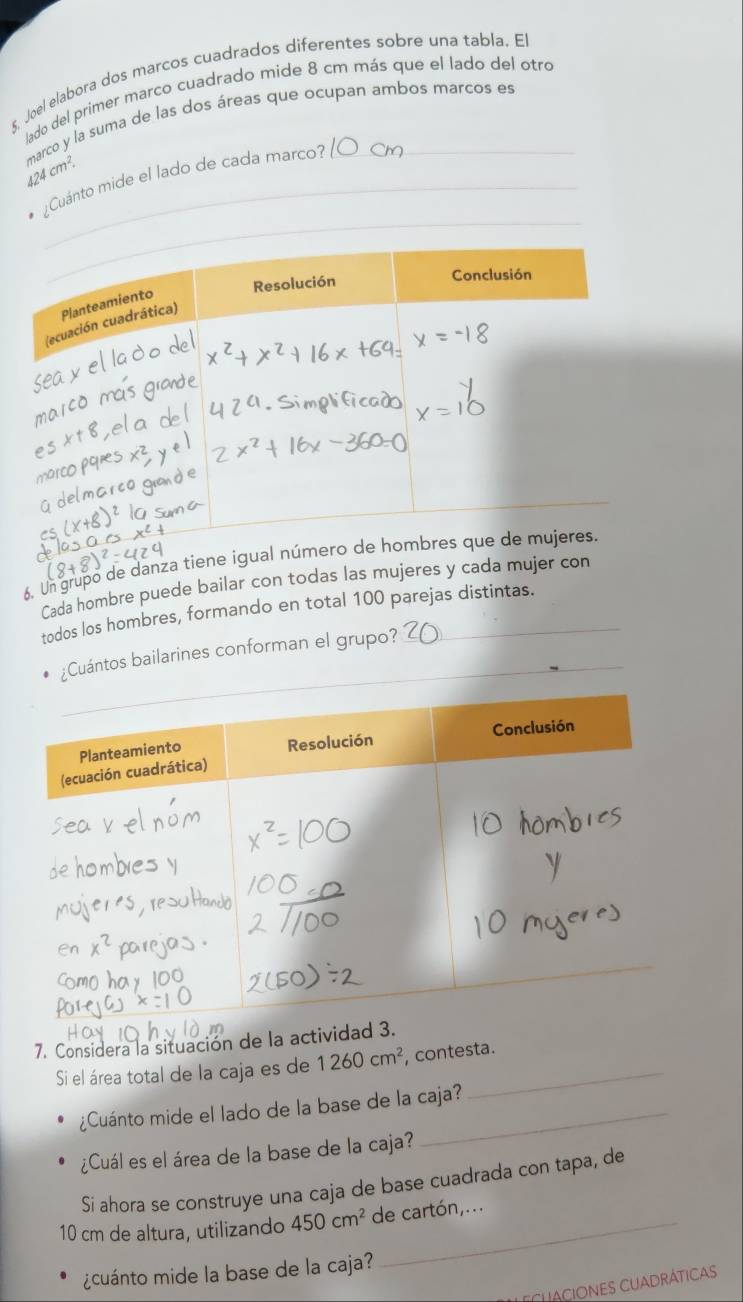 5. Joel elabora dos marcos cuadrados diferentes sobre una tabla. El
lado del primer marco cuadrado mide 8 cm más que el lado del otro
marco y la suma de las dos áreas que ocupan ambos marcos es
424 cm².
• ¿Cuánto mide el lado de cada marco? 10 cm
Planteamiento
(ecuación cuadrática)
Resolución
Conclusión
sea x el lado del
marco más grande
es x+8, el a del
marco pques x², y el
a del marco grande
es (x+8)² la suma
de las a es x²+
(8+8)²=424
x²+x²+16x+64=
424. Simplificado
2x²+16x-360=0
x=-18
y
x=10
6. Un grupo de danza tiene igual número de hombres que de mujeres.
Cada hombre puede bailar con todas las mujeres y cada mujer con
todos los hombres, formando en total 100 parejas distintas.
• ¿Cuántos bailarines conforman el grupo? 20
Planteamiento
(ecuación cuadrática)
Resolución
Conclusión
sea x el núm
de hombres y
mujeres, resultando
en x² parejas.
como hay 100
parejas x=10
Hay 10 h y 10 m
x²=100
2(50)÷2
10 hombres
y
10 mujeres
7. Considera la situación de la actividad 3.
Si el área total de la caja es de 1 260 cm², contesta.
• ¿Cuánto mide el lado de la base de la caja?
• ¿Cuál es el área de la base de la caja?
Si ahora se construye una caja de base cuadrada con tapa, de
10 cm de altura, utilizando 450 cm² de cartón,...
• ¿cuánto mide la base de la caja?
ECUACIONES CUADRÁTICAS